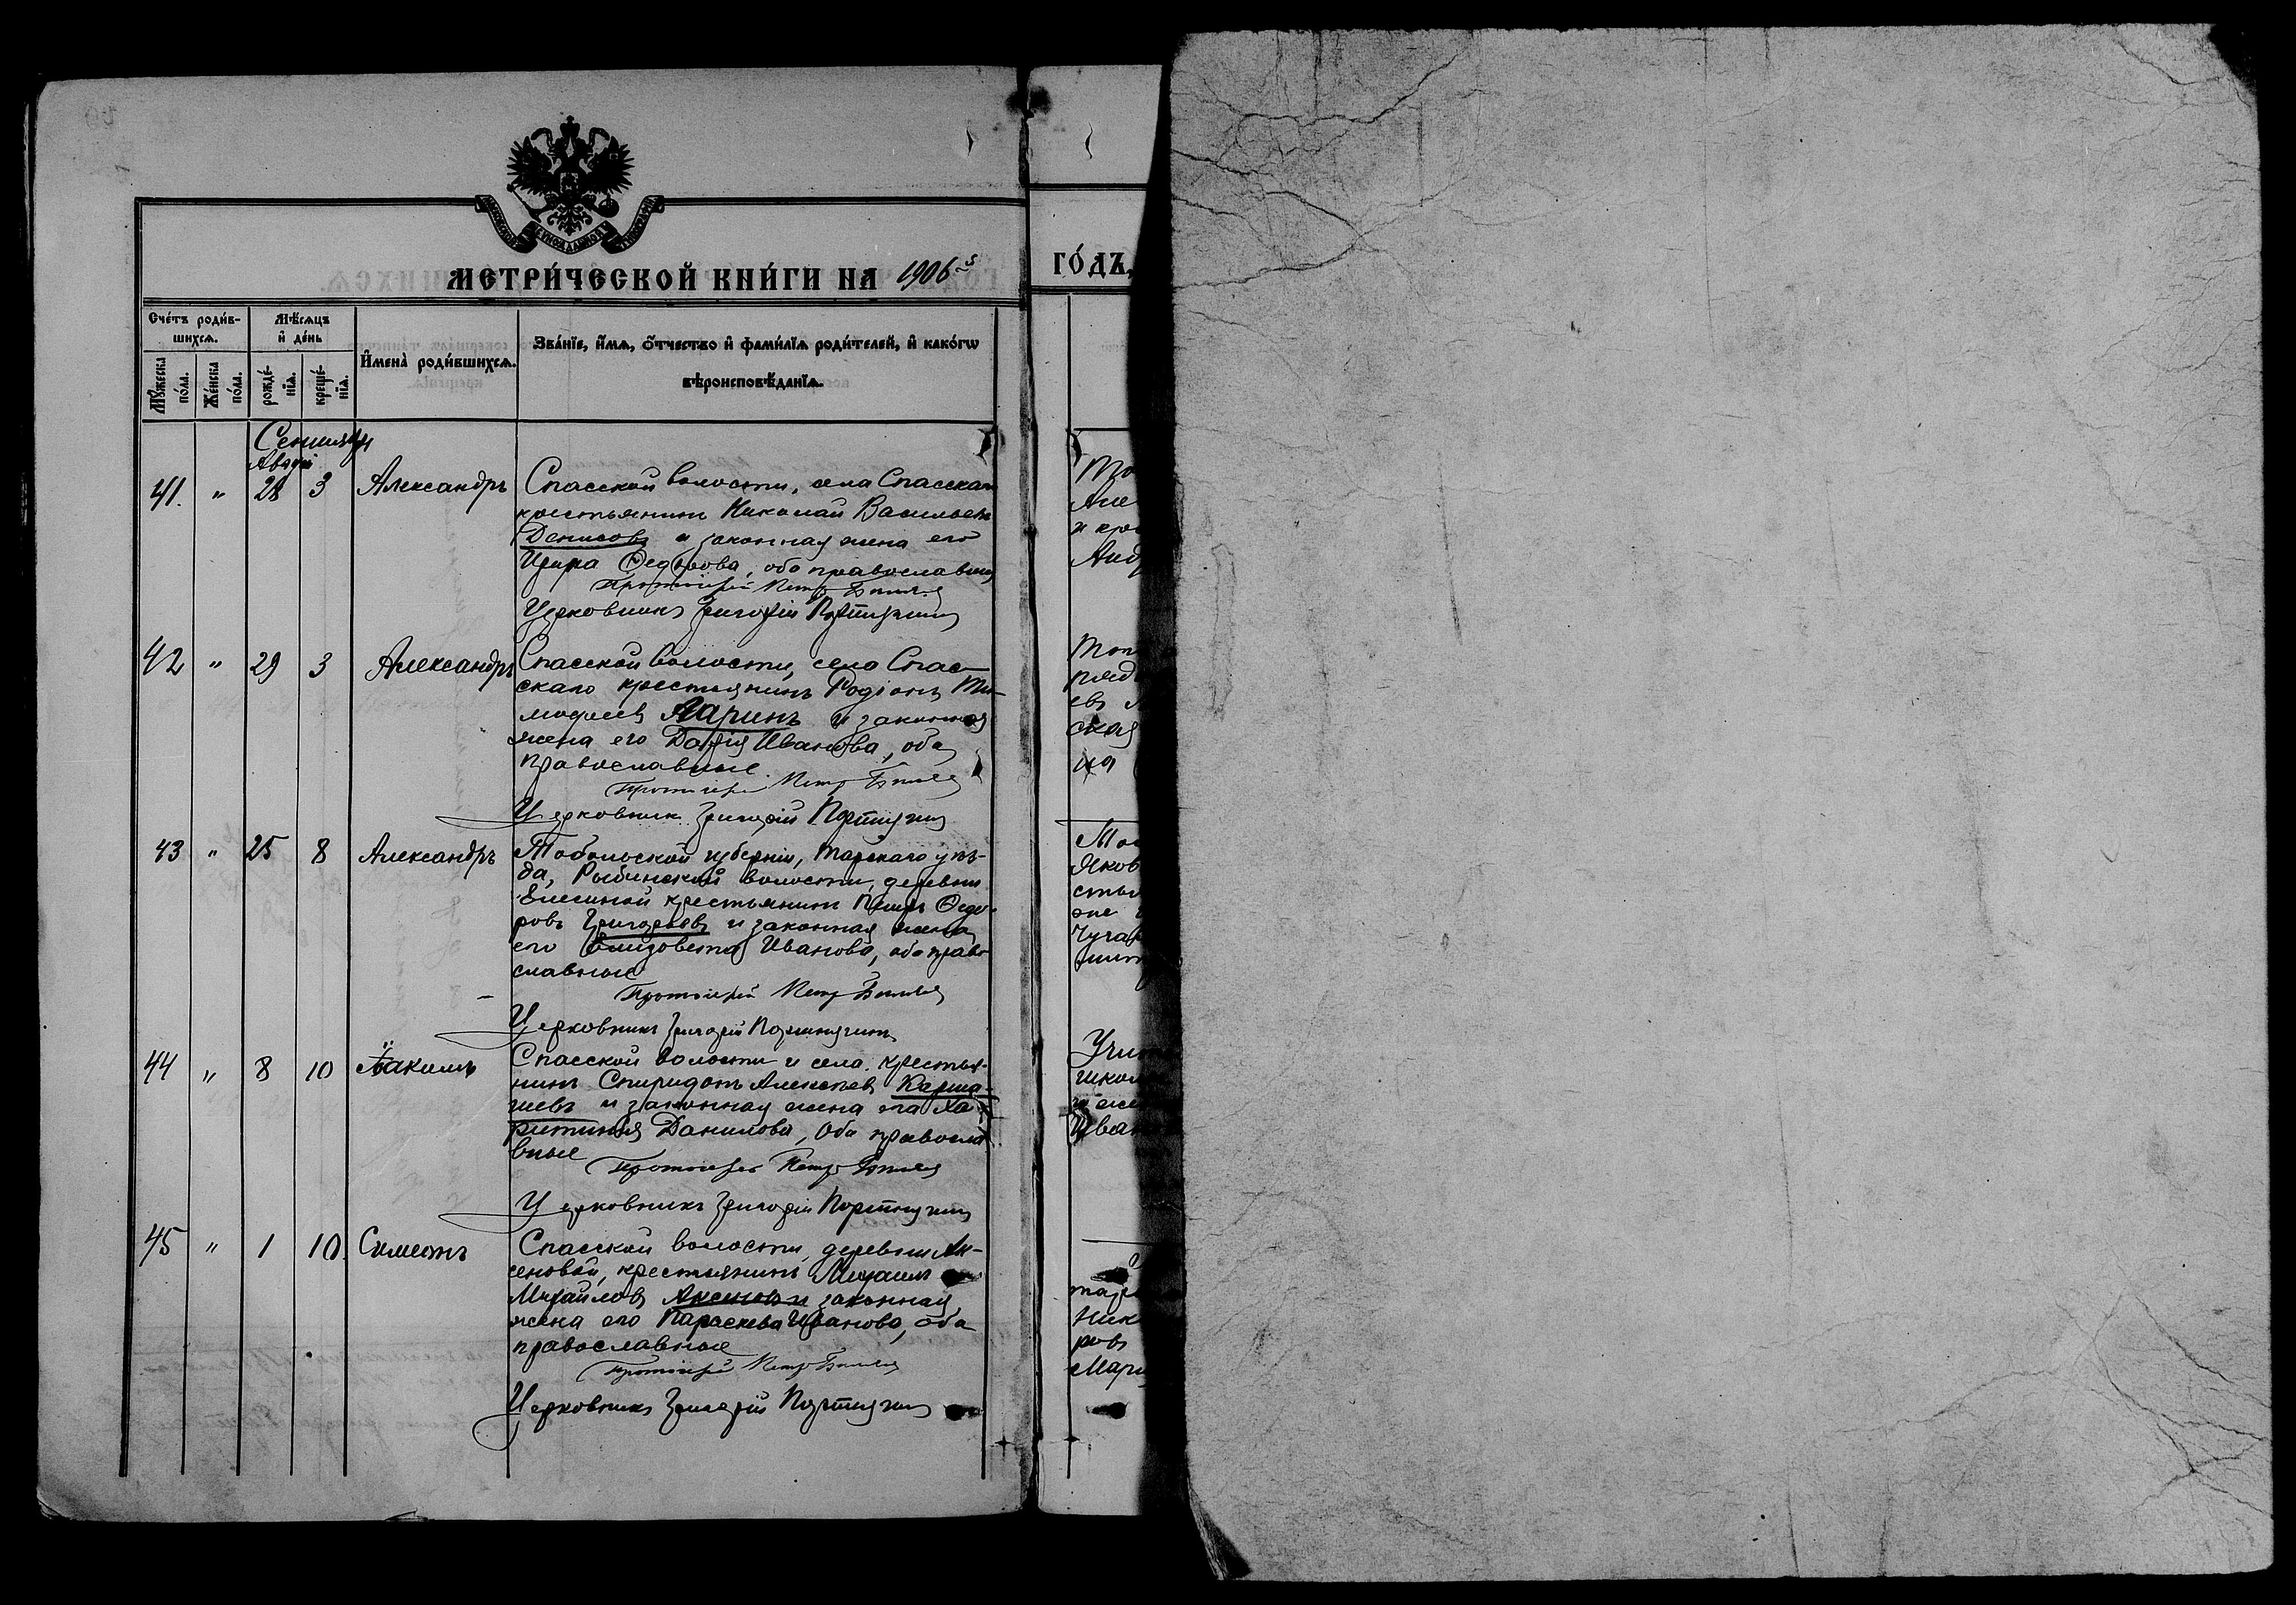 МЕТРИ́ЧЕСКОЙ КНИ́ГИ НА 1906-й
ГО́ДЪ,
Сче́тъ роди́в-
шихсѧ.
Мѣ́сѧцъ
и҆ де́нь
И҆мена̀ роди́вшихсѧ.
Зва́нїе, и҆́мѧ, ѻ҆́тчество и҆ фами́лїѧ роди́телей, и҆ како́гѡ
вѣроисповѣ́данїѧ.
Мꙋ́жеска
по́ла.
Же́нска
по́ла.
рожде́-
нїѧ.
креще́-
нїѧ.
Сентябрь
Август
41. " 28 3 Александръ
Спасской волости, села Спасскаго
крестьянинъ Николай Васильевъ
Денисовъ и законная жена его
Ѳедорова, оба православные
Протоіерей Петръ Бѣляевъ
Церковникъ Григорій Портнягинъ
42 " 29 3 Александръ
Спасской волости, села Спас-
скаго крестьянинъ Родіонъ Ти-
моѳеевъ Ларинъ и законная
жена его Дарія Иванова, оба
православные
Протоіерей Петръ Бѣляевъ
Церковникъ Григорій Портнягинъ
43 " 25 8 Александръ
Тобольской губерніи, Тарскаго уѣз-
да, Рыбинской волости, деревни
крестьянинъ Петръ Ѳедо-
ровъ Григорьевъ и законная жена
его Елизавета Иванова, оба право-
славные
Протоіерей Петръ Бѣляевъ
Церковникъ Григорій Портнягинъ
44 " 8 10 Іоакимъ
Спасской волости и села крестья-
нинъ Спиридонъ Алексѣевъ Карма-
чевъ и законная жена его Ха-
ритинія Данилова, оба правосла
вные
Протоіерей Петръ Бѣляевъ
Церковникъ Григорій Портнягинъ
45 " 1 10 Симеонъ
Спасской волости, деревни Ак-
сеновой, крестьянинъ Михаилъ
Михайловъ Аксеновъ и законная
жена его Параскева Иванова, оба
православные
Протоіерей Петръ Бѣляевъ
Церковникъ Григорій Портнягинъ